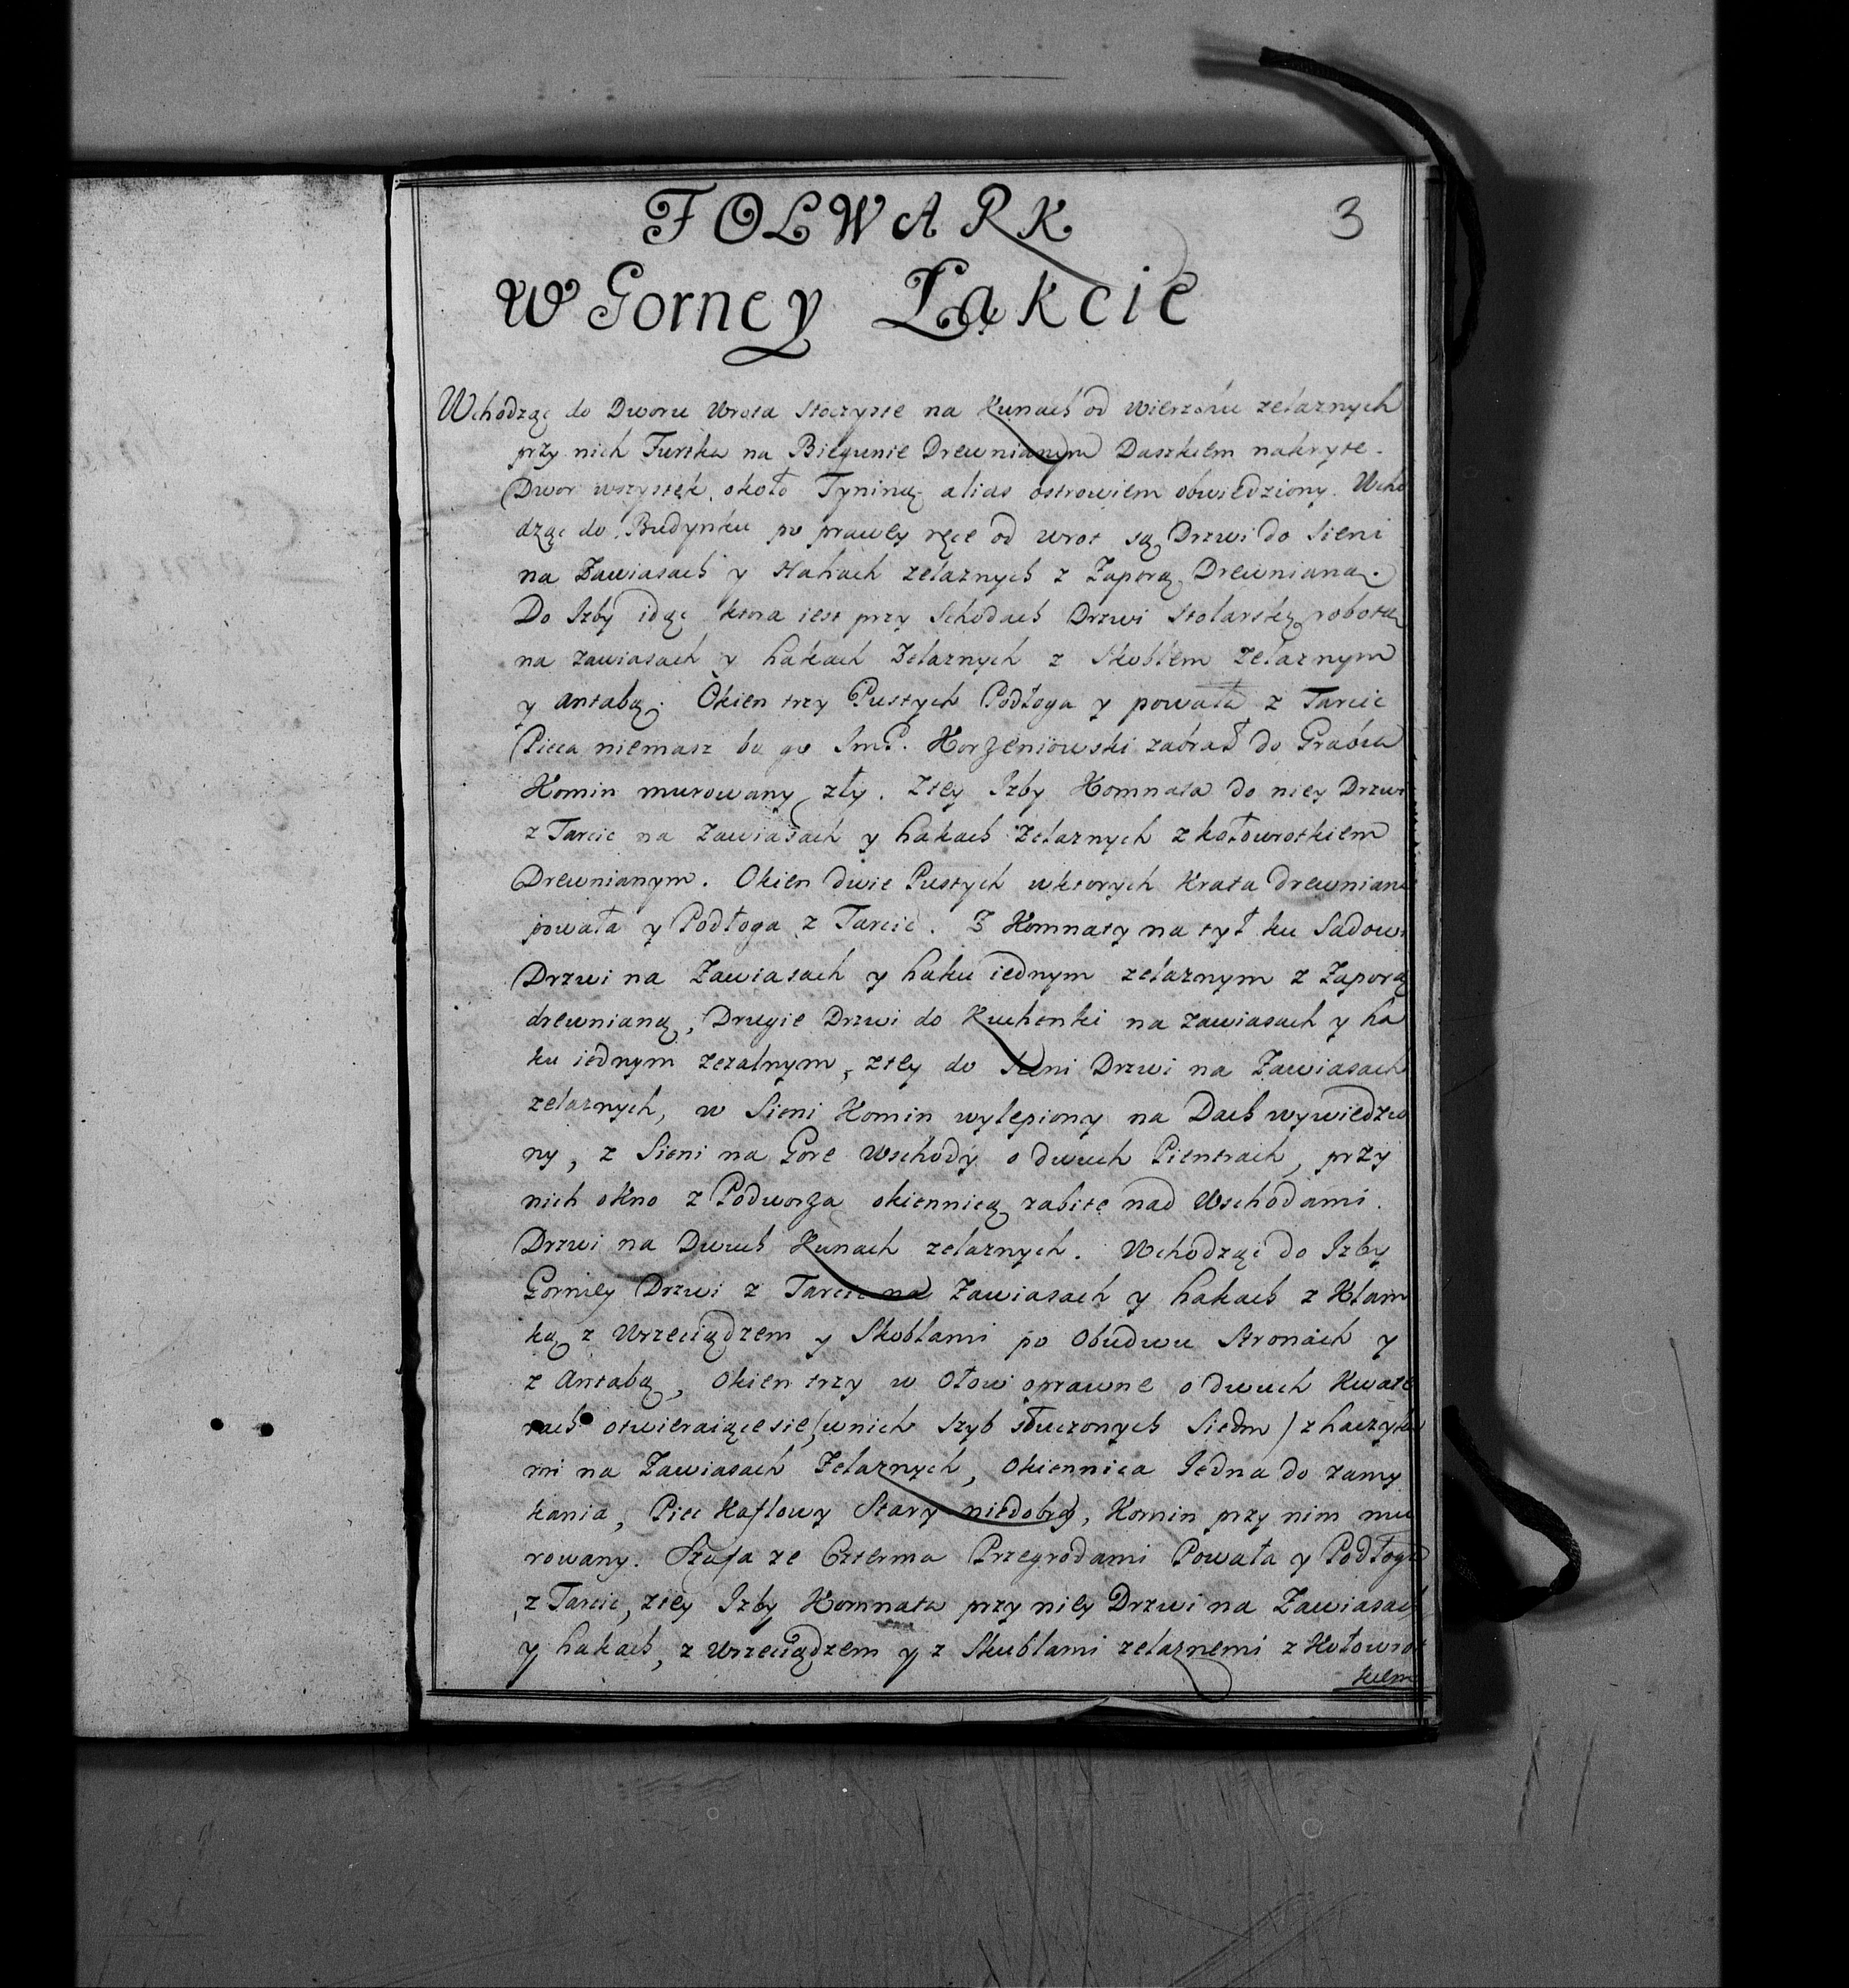 FOLWARK
3
w Gorney Łąkcie
Wchodząc do Dworu Wrota stoczyste na Kunach od wierzchu zelaznych
przy nich Furtka na Biegunie Drewnianym Daszkiem nakryte.
Dwor wszystek około Tyniną alias ostrowiem obwiedziony. Wcho
dząc do Budynku po prawey ręce od wrot są Drzwi do Sieni
na Zawiasach y Hakach zelaznych z Zaporą Drewnianą.
Do Izby idąc ktora iest przy Schodach Drzwi Stolarską robotą
na zawiasach y hakach Zelaznych z Skoblem zelaznym
y antabą. Okien trzy Pustych Podłoga y powała z Tarcic
Pieca niemasz bo go ImP. Korzeniowski zabrał do Grabia
Komin murowany zły. Ztey Izby Komnata do niey Drzwi
z Tarcic na Zawiasach y hakach zelaznych z kołowrotkiem
Drewnianym. Okien dwie Pustych wktorych Krata drewniana
powała y Podłoga z Tarcic. Z Komnaty na tył ku Sadowi
Drzwi na Zawiasach y haku iednym zelaznym z Zaporą
drewnianą, Drugie Drzwi do Kuchenki na zawiasach y ha
ku iednym zezalnym, ztey do Sieni Drzwi na Zawiasach
zelaznych, w Sieni Komin wylepiony na Dach wywiedzio
ny, z Sieni na Gore Wschody o dwuch Pientrach, przy
nich okno z Podworza okiennicą zabite nad Wschodami.
Drzwi na Dwuch Kunach zelaznych. Wchodząc do Izby
Gorniey Drzwi z Tarcic na Zawiasach y hakach z Klam
ką z Wrzeciądzem y Skoblami po Obudwu Stronach y
z Antabą, Okien trzy w Ołow oprawne o dwuch Kwate
rach otwieraiące sie (wnich Szyb stłuczonych Siedm) z haczyka
mi na Zawiasach Zelaznych, Okiennica Jedna do zamy
kania, Piec Kaflowy Stary niedobry, Komin przy nim mu
rowany. Szafa ze Czterma Przegrodami Powała y Podłoga
z Tarcic, ztey Izby Komnata przy niey Drzwi na Zawiasach
y hakach, z Wrzeciądzem y z Skublami zelaznemi z Kołowrot
kiem